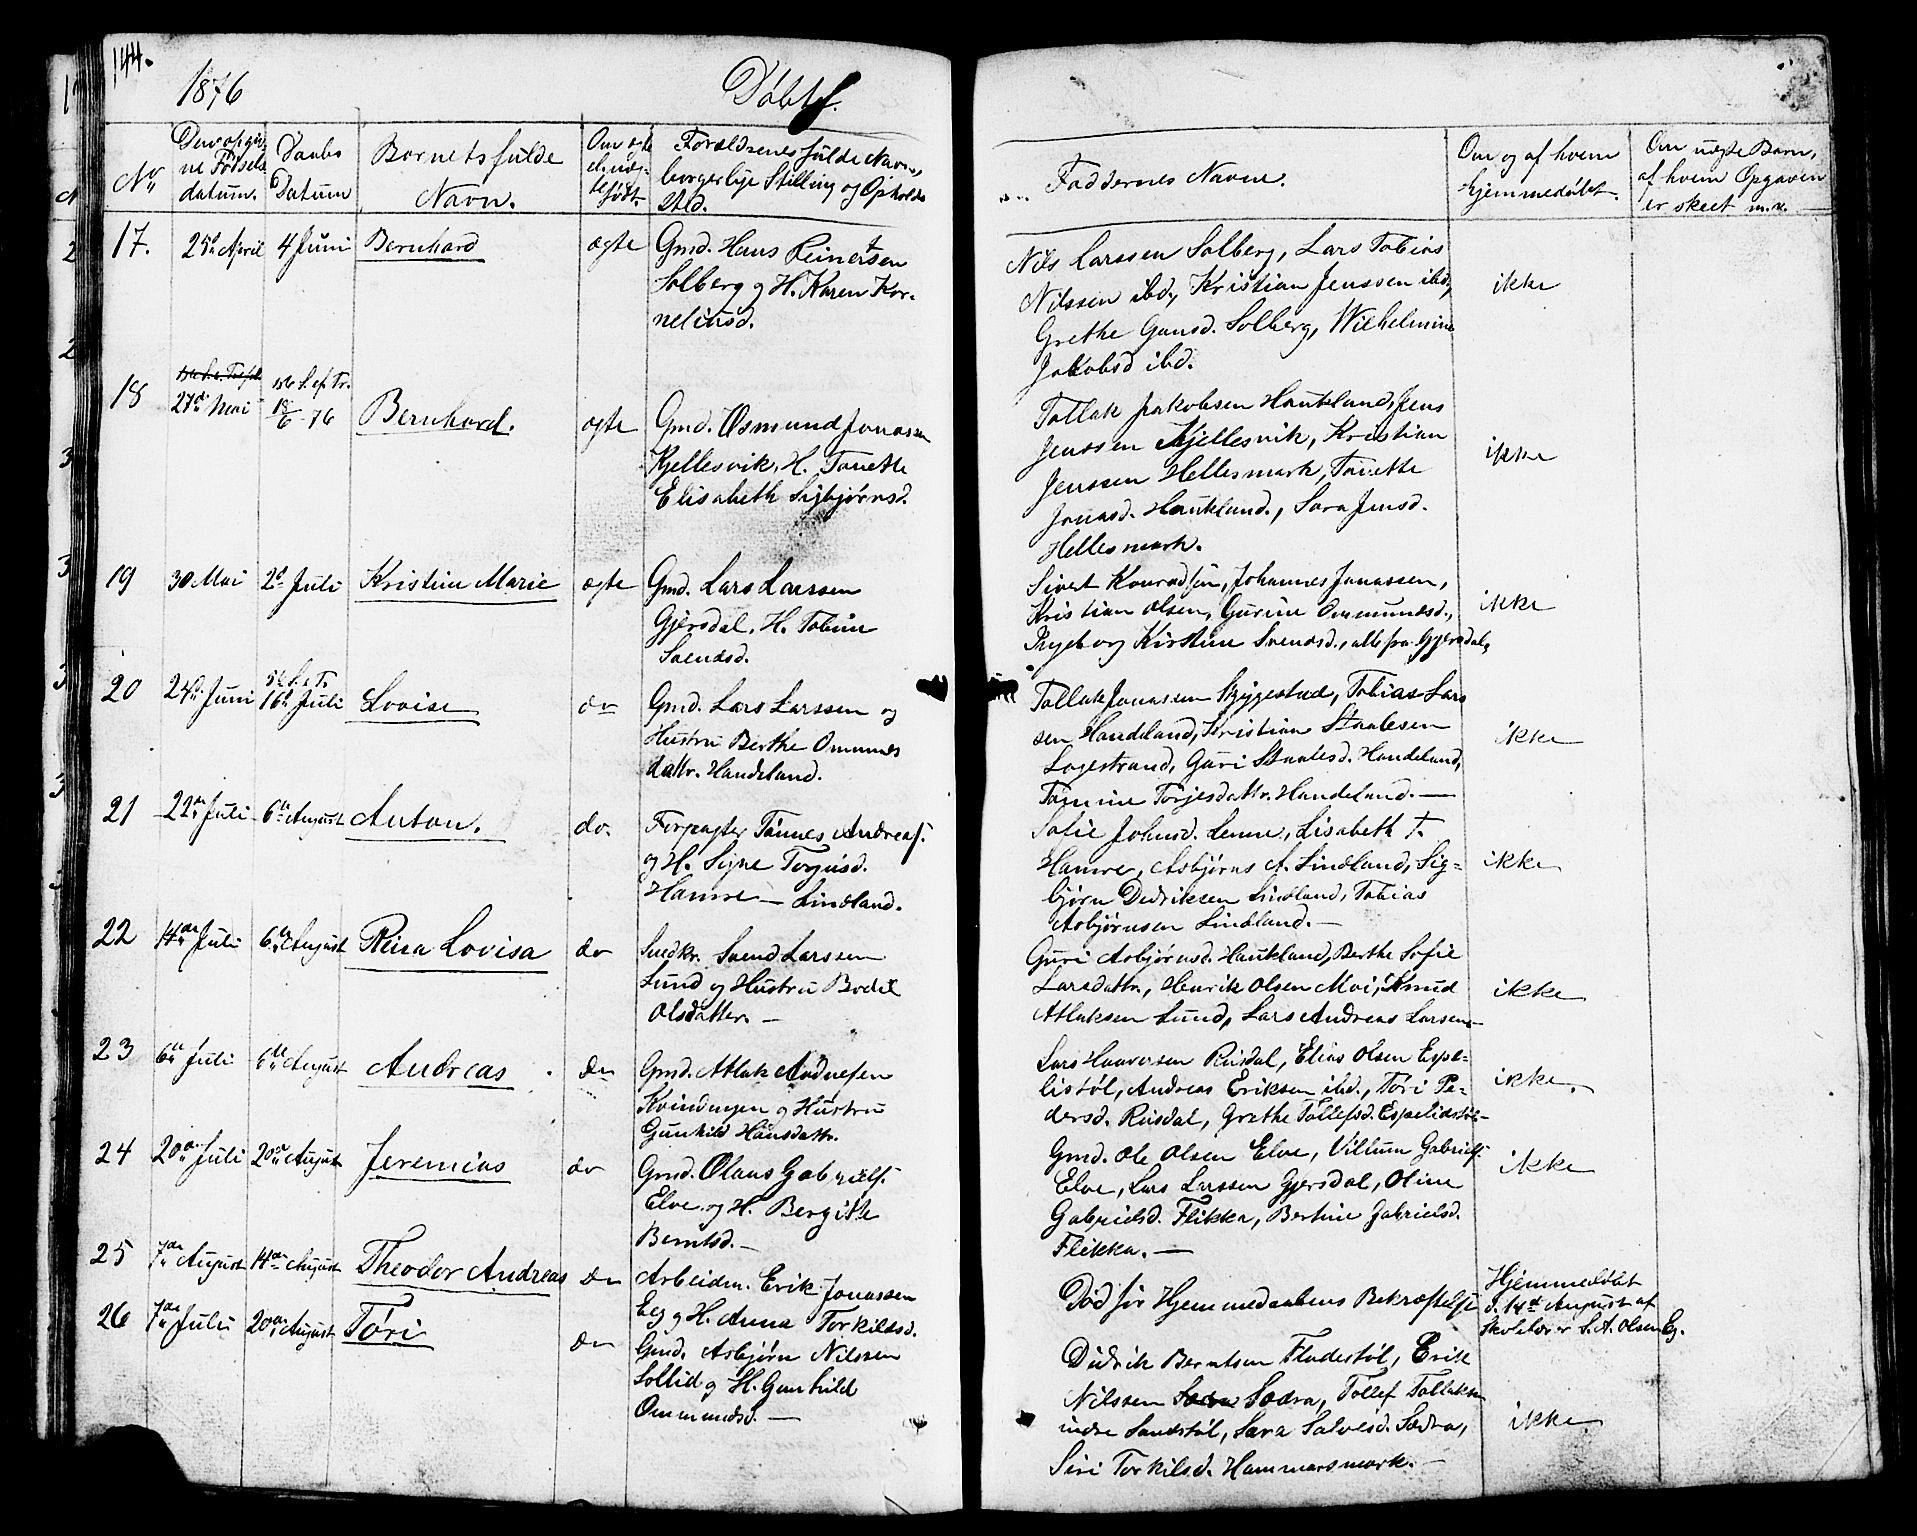 144.
1876
Døbte.
No
Den opgiv-
ne Fødsels
datum.
Daabs
Datum
Barnets fulde
Navn.
Om ægte
el. uæg-
te født.
Forældrenes fulde Navn,
borgerlige Stilling og Opholds
Sted.
Faddernes Navne.
Om og af hvem
hjemmedøbt.
Om uægte Barn,
af hvem Opgaven
er skeet m.v.
17.
25de April
4 Juni
Bernhard
ægte
Gmd. Hans Reinertsen
Solberg og H. Karen Kor-
neliusd.
Nils Larssen Solberg, Lars Tobias
Nilssen ibd, Kristian Jenssen ibd,
Grethe Gunsd. Solberg, Wilhelmine
Jakobsd ibd.
ikke
18
27de Mai
S. ef. Tr.
18/6 76
Bernhard.
ægte
Gmd. Osmund Jonassen
Kjellesvik, H. Tonette
Elisabeth Sigbjørnsd.
Tollak Jakobsen Haukland, Jens
Jenssen Kjellesvik, Kristian
Jenssen Hellesmark, Tonette
Jonasd. Haukland., Sara Jensd.
Hellesmark.
ikke
19
30 Mai
2de Juli
Kristine Marie
ægte
Gmd. Lars Larssen
Gjersdal. H. Tobine
Svendsd.
Sivert Konradsen, Johannes Jonassen,
Kristian Olsen, Gurine Ommundsd.,
Ingeborg Kirstine Svendsd., alle fra Gjersdal,
ikke
20
24de Juni
5te S. e. Tr.
16de Juli
Lovise
do
Gmd. Lars Larssen og
Hustru Berthe Ommunds
dattr. Handeland.
Tollak Jonassen Byggestad, Tobias Lars
sen Handeland, Kristian Staalesen
Logestrand, Guri Staalesd. Handeland,
Tomine Torjesdattr. Handeland. —
ikke
21
22de Juli
6te August
Anton.
do.
Forpagter Tønnes Andreas.
og H. Signe Torgusd.
Hamre — Lindland.
Sofie Johnsd. Lenne, Lisabeth T.
Hamre, Asbjørns A. Lindland, Sig-
bjørn Dedriksen Lindland, Tobias
Asbjørnsen Lindland. —
ikke
22
14de Juli
6te August
Rina Lovisa
do
Snedkr. Svend Larssen
Lund og Hustru Bodil
Olsdatter. —
Guri Asbjørnsd. Haukland, Berthe Sofie
Larsdattr., Henrik Olsen Moi, Knud
Atlaksen Lund, Lars Andreas Larsen —
ikke
23
6te Juli
6te August
Andreas
do
Gmd. Atlak Aadnesen
Kvindingen og Hustru
Gunhild Hansdattr.
Lars Haaversen Rusdal, Elias Olsen Espe-
listøl, Andreas Eriksen ibd., Tøri Pe-
dersd. Rusdal, Grethe Tollefsd. Espelistøl —
ikke.
24
20de Juli
20de August
Jeremias
do
Gmd. Olaus Gabriels.
Elve og H. Bergitte
Berntsd. —
Gmd. Ole Olsen Elve, Villum Gabriels.
Elve, Lars Larssen Gjersdal, Oline
Gabrielsd. Flikka, Bertine Gabrielsd.
Flikka. —
ikke
25
7de August
14de August
Theodor Andreas
do
Arbeidm. Erik Jonassen
Eeg og H. Anna Torkildsd.
Død før Hjemmedaabens Bekræftelse
Hjemmedøbt
d. 14de August af
Skolelærer S. A. Olsen Eg.
26
7de Juli
20de August
Tøri
do
Gmd. Asbjørn Nilssen
Sollid og H. Gunhild
Ommundsd. —
Didrik Berntsen Fladestøl, Erik
Nilssen Sædra, Tollef Tollaksen
indre Sandstøl, Sara Salvesd. Sædra,
Siri Torkilsd. Hammarsmark. —
ikke